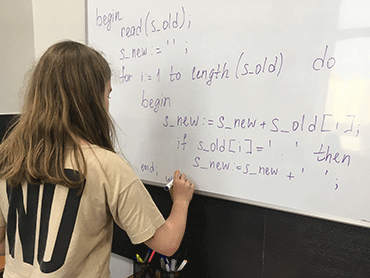 begin
read(s_old);
s_new:='';
for i:=1 to length(s_old) do
begin
s_new:=s_new+s_old[i];
if s_old[i]='.' then
s_new:=s_new+' ';
end;
NU